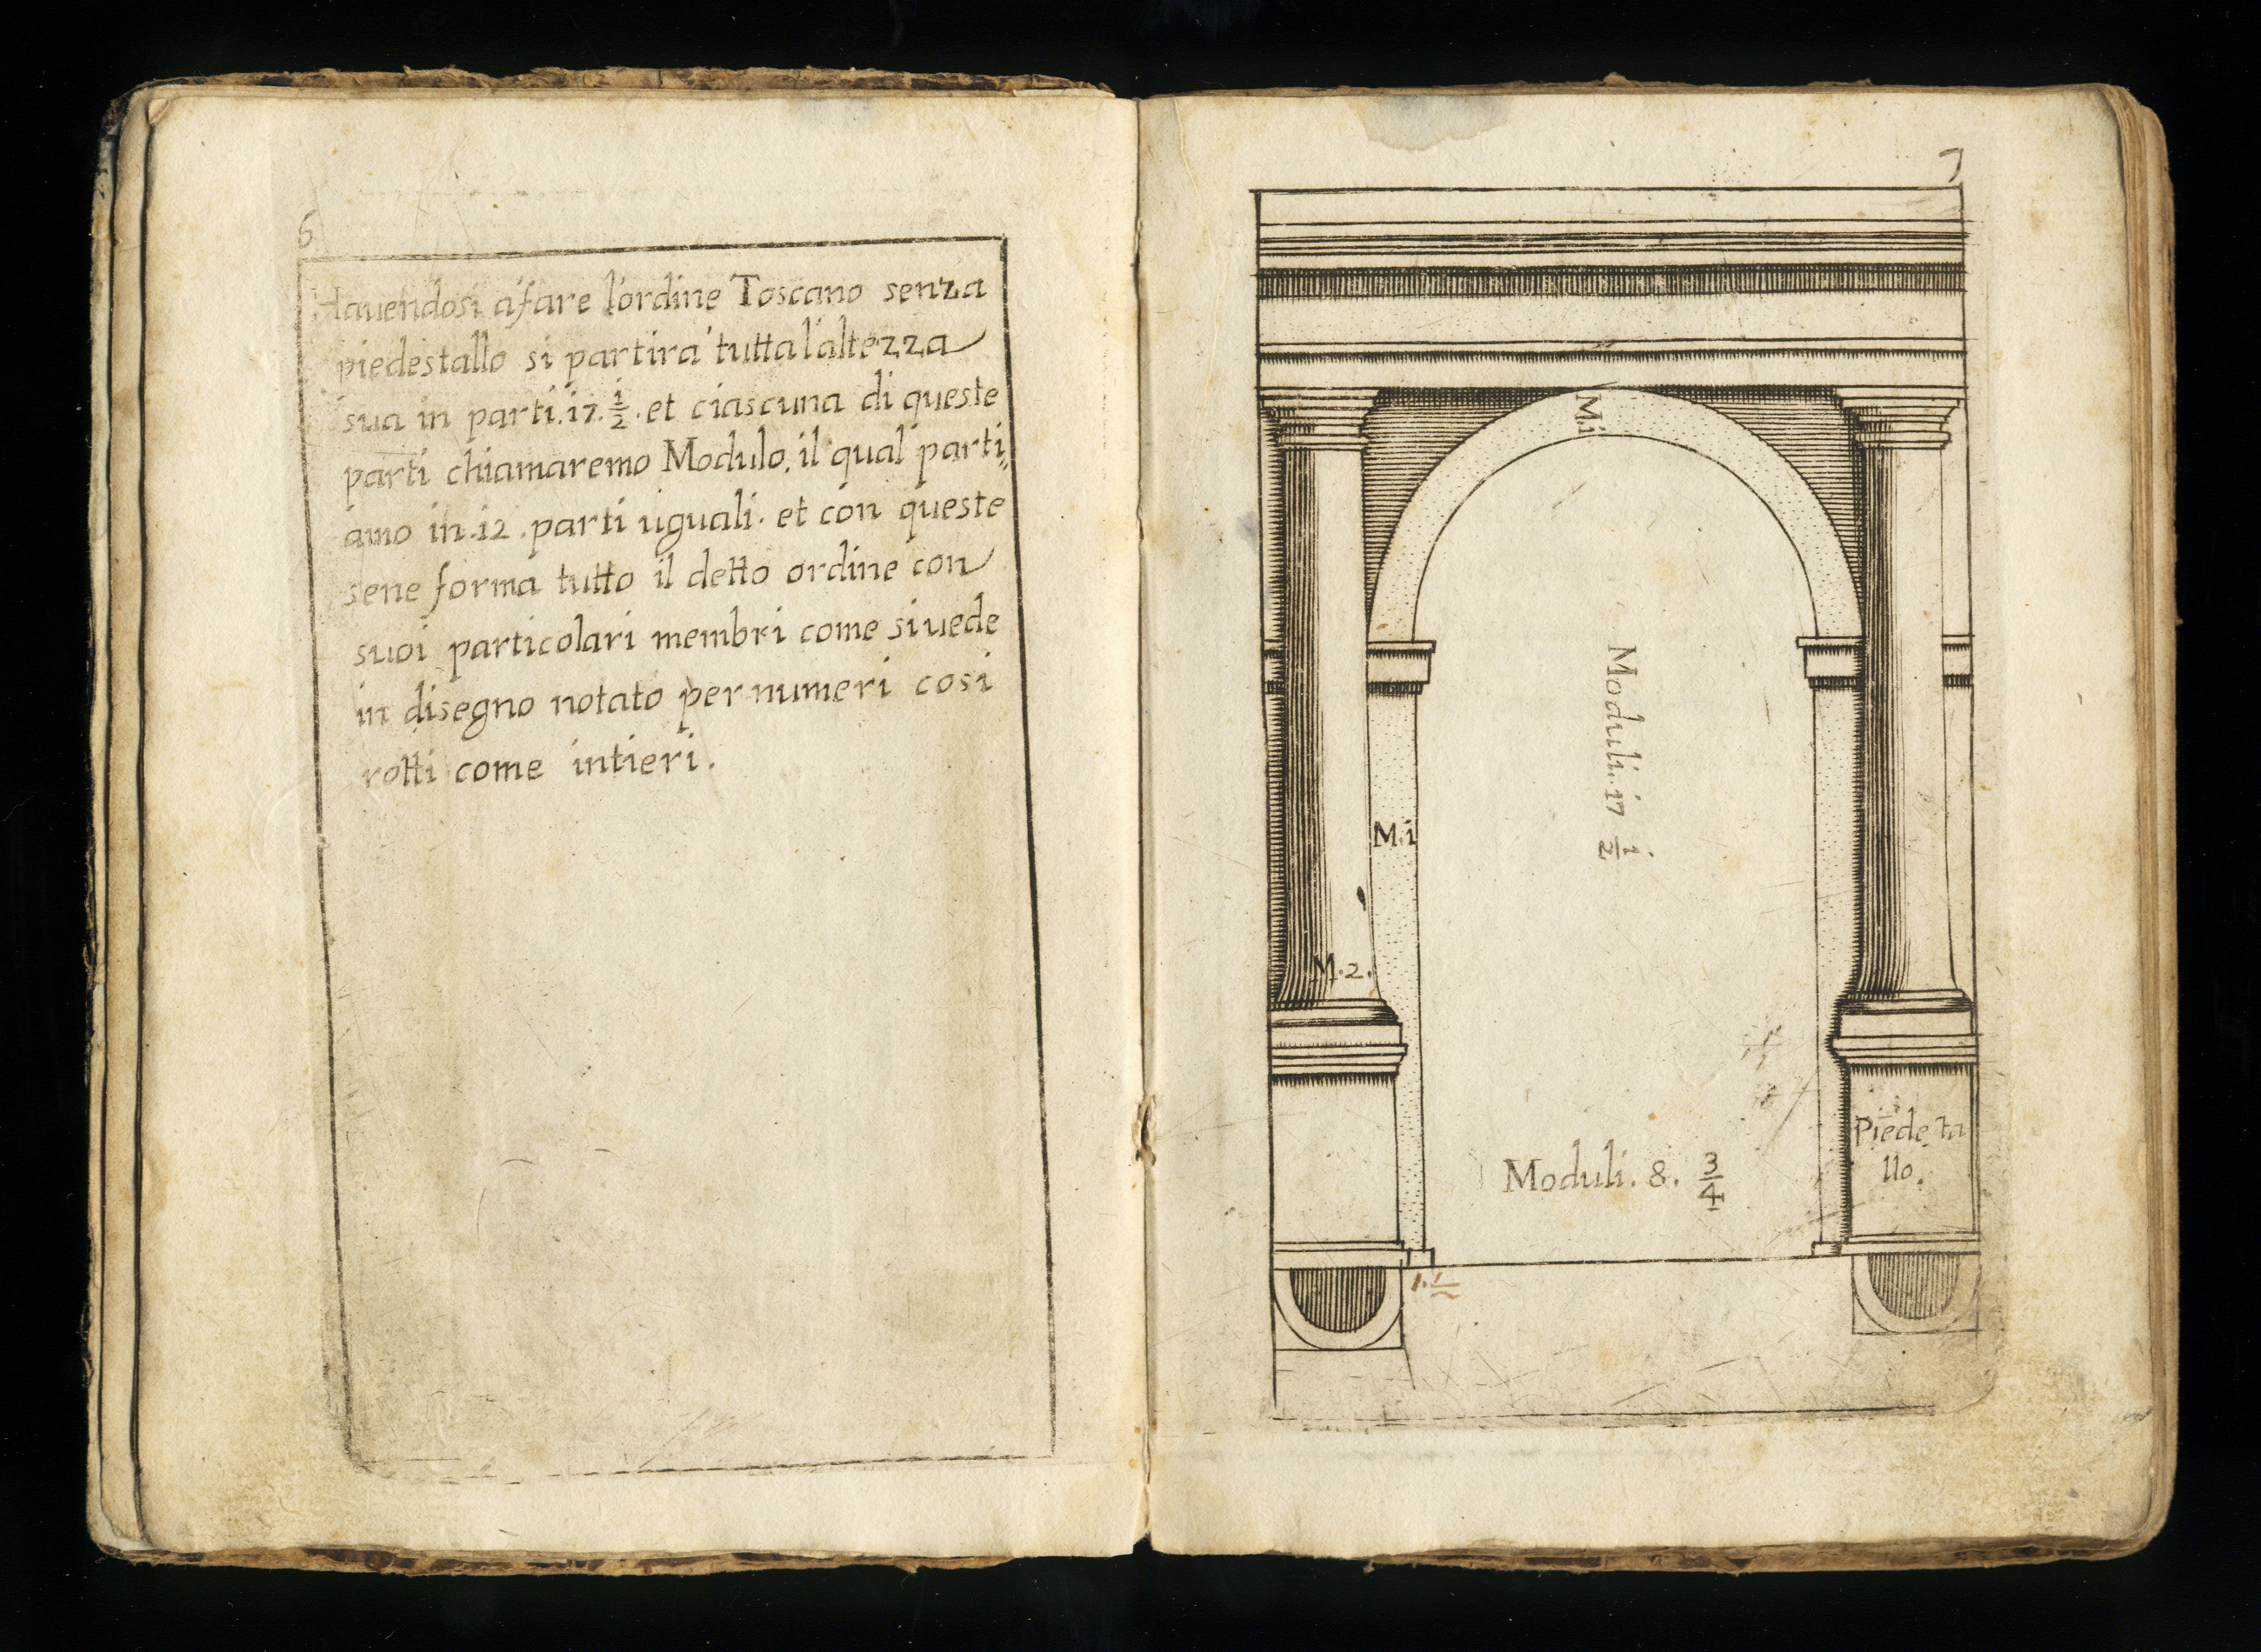 6
Havendosi a fare l'ordine Toscano senza
piedestallo si partira' tutta l'altezza
sua in parti. i7. i/2. et ciascuna di queste
parti chiamaremo Modulo. il qual parti,,
amo in. i2. parti uguali. et con queste
sene forma tutto il detto ordine con
suoi particolari membri come si uede
in disegno notato per numeri cosi
rotti come intieri.
7
M.i
Moduli. i7 i/2
M.i
M.2.
Moduli. 8. 3/4
Piedesta
llo.